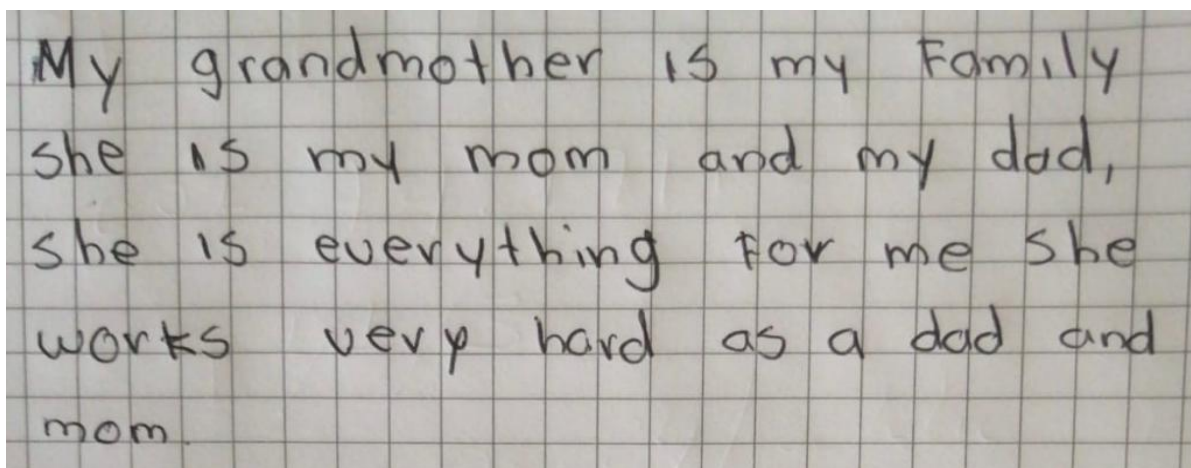 My grandmother is my Family
she is my mom and my dad,
she is everything for me she
works very hard as a dad and
mom.